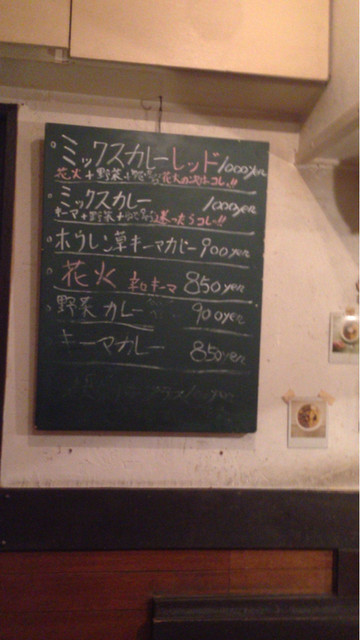 ミックスカレーレッド 1000yen
花火+野菜
ミックスカレー 1000yen
キーマ+野菜+ 迷ったらコレ!!
ホウレン草キーマカレー 900yen
花火 辛口キーマ 850yen
野菜カレー 900yen
キーマカレー 850yen